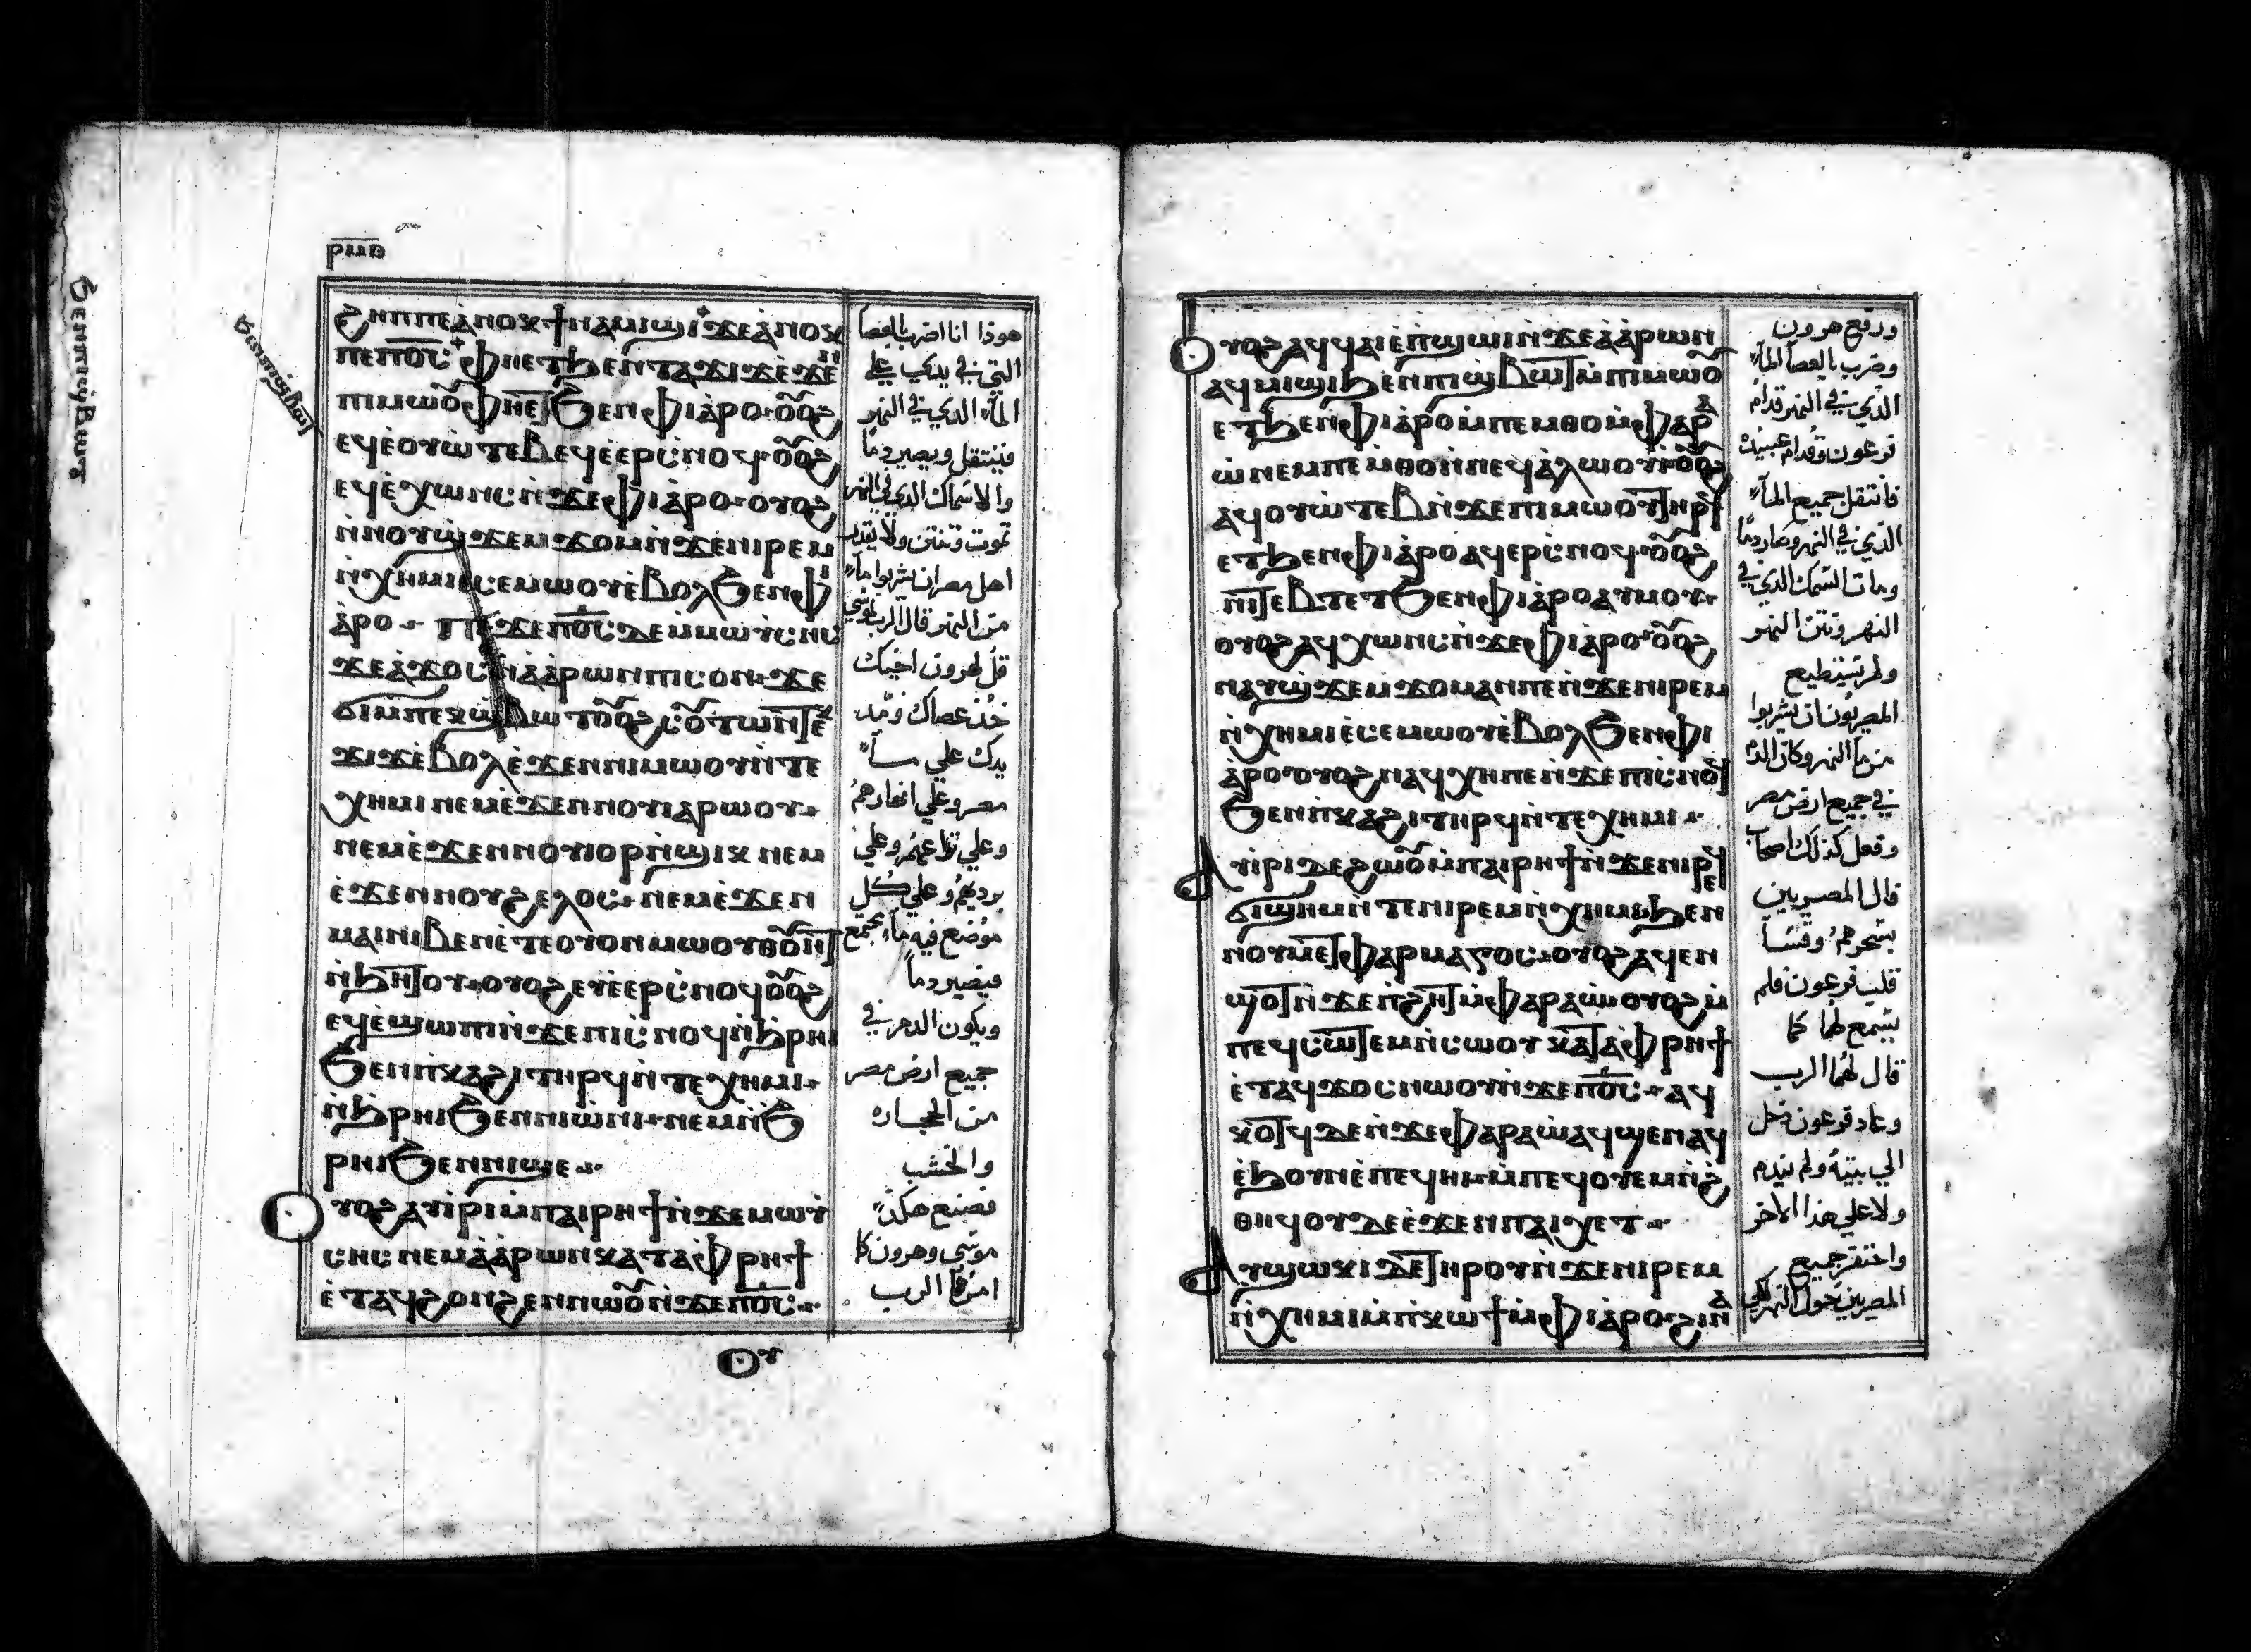 ⲣⲙⲑ
ϩⲏⲡⲡⲉⲁ̀ⲛⲟⲕϯⲛⲁⲙⲓϣⲓϫⲉⲁ̀ⲛⲟⲕ
ⲡⲉⲡⲟ̅ⲥ̅ⲫⲏⲉⲧϧⲉⲛⲧⲁϫⲓϫⲉ̀ϫⲉⲛ
ⲡⲓⲙⲱⲟⲩⲫⲏⲉⲧϧⲉⲛⲫⲓⲁ̀ⲣⲟ ⲟⲩⲟϩ
ⲉϥⲉ̀ⲟⲩⲱ̀ⲧⲉⲃⲉϥⲉ̀ⲉⲣⲥ̀ⲛⲟϥ ⲟⲩⲟϩ
ⲉϥⲉ̀ⲭⲱⲛⲥ ⲛ̀ϫⲉⲫⲓⲁ̀ⲣⲟ ⲟⲩⲟϩ
ⲛ̀ⲛⲟⲩϣ̀ϫⲉⲙϫⲟⲙⲛ̀ϫⲉⲛⲓⲣⲉⲙ
ⲛ̀ⲭⲏⲙⲓⲉ̀ⲥⲉⲙⲱⲟⲩⲉ̀ⲃⲟⲗϧⲉⲛⲫⲓ
ⲁ̀ⲣⲟ ⲡⲉϫⲉⲡⲟ̅ⲥ̅ⲇⲉⲙ̀ⲙⲱⲩⲥⲏⲥ
ϫⲉⲁ̀ϫⲟⲥⲛ̀ⲁ̀ⲁ̀ⲣⲱⲛⲡⲓⲥⲟⲛϫⲉ
ϭⲓⲙ̀ⲡⲉⲕϣ̀ⲃⲱⲧ ⲟⲩⲟϩ ⲥⲟⲩⲧⲱⲛⲧⲉⲕ
ϫⲓϫⲉ̀ⲃⲟⲗⲉ̀ϫⲉⲛⲛⲓⲙⲱⲟⲩⲛ̀ⲧⲉ
ⲭⲏⲙⲓⲛⲉⲙⲉ̀ϫⲉⲛⲛⲟⲩⲓⲁⲣⲱⲟⲩ
ⲛⲉⲙⲉ̀ϫⲉⲛⲛⲟⲩⲓⲟⲣⲛ̀ϣⲓⲕ ⲛⲉⲙ
ⲉ̀ϫⲉⲛⲛⲟⲩϩⲉⲗⲟⲥ ⲛⲉⲙⲉ̀ϫⲉⲛ
ⲙⲁⲓⲛⲓⲃⲉⲛⲉ̀ⲧⲉⲟⲩⲟⲛⲙⲱⲟⲩⲑⲟⲩⲏⲧ
ⲛ̀ϧⲏⲧⲟⲩ ⲟⲩⲟϩ ⲉⲩⲉ̀ⲉⲣⲥ̀ⲛⲟϥ ⲟⲩⲟϩ
ⲉϥⲉ̀ϣⲱⲡⲓⲛ̀ϫⲉⲡⲓⲥ̀ⲛⲟϥⲛ̀ϧⲣⲏⲓ
ϧⲉⲛⲡ̀ⲕⲁϩⲓⲧⲏⲣϥⲛ̀ⲧⲉⲭⲏⲙⲓ
ⲛ̀ϧⲣⲏⲓϧⲉⲛⲛⲓⲱ̀ⲛⲓ ⲛⲉⲙⲛ̀ϧ
ⲣⲏⲓϧⲉⲛⲛⲓϣⲉ
ⲟⲩⲟϩⲁⲩⲓ̀ⲣⲓⲙ̀ⲡⲁⲓⲣⲏϯⲛ̀ϫⲉⲙⲱⲩ
ⲥⲏⲥ ⲛⲉⲙⲁ̀ⲁ̀ⲣⲱⲛⲕⲁⲧⲁⲫⲣⲏϯ
ⲉ̀ⲧⲁϥϩⲟⲛϩⲉⲛⲛⲱⲟⲩⲛ̀ϫⲉⲡⲟ̅ⲥ̅
ⲟⲩ
هوذا انا اضرب بالعصا
التي في يدي علي
الماء الذي في النهر
فينتقل ويصير دما
والاسماك الذي في النهر
تموت وتنتن ولا يقدر
اهل مصر ان يشربوا ماء
من النهر قال الرب لموسي
قل لهرون اخيك
خذ عصاك ومد
يدك علي مياء
مصر وعلي انهارهم
وعلي ترعهم وعلي
برديهم وعلي كل
موضع فيه ماء مجمع
فيصير دما
ويكون الدم في
جميع ارض مصر
من الحجاره
والخشب
فصنع هكذا
موسي وهرون كما
امرهما الرب
ⲟⲩⲟϩⲁϥϥⲁⲓⲉ̀ⲡ̀ϣⲱⲓⲛ̀ϫⲉⲁ̀ⲁ̀ⲣⲱⲛ
ⲁϥⲙⲓϣⲓϧⲉⲛⲡⲓϣ̀ⲃⲱⲧⲙ̀ⲡⲓⲙⲱⲟⲩ
ⲉⲧϧⲉⲛⲫⲓⲁ̀ⲣⲟⲙ̀ⲡⲉⲙⲑⲟⲙ̀ⲫⲁⲣⲁ
ⲱ̀ⲛⲉⲙⲡⲉⲙ̀ⲑⲟⲛ̀ⲛⲉϥⲁ̀ⲗⲱⲟⲩⲓ̀ⲟⲩⲟϩ
ⲁϥⲟⲩⲱ̀ⲧⲉⲃⲛ̀ϫⲉⲡⲓⲙⲱⲟⲩⲧⲏⲣϥ
ⲉⲧϧⲉⲛⲫⲓⲁ̀ⲣⲟⲁϥⲉⲣⲥ̀ⲛⲟϥ ⲟⲩⲟϩ
ⲛⲓⲧⲉⲃⲧⲉⲧϧⲉⲛⲫⲓⲁ̀ⲣⲟⲁⲩⲙⲟⲩ
ⲟⲩⲟϩⲁϥⲭⲱⲛⲥⲛ̀ϫⲉⲫⲓⲁ̀ⲣⲟ ⲟⲩⲟϩ
ⲛⲁⲩϣ̀ϫⲉⲙϫⲟⲙⲁⲛⲡⲉⲛ̀ϫⲉⲛⲓⲣⲉⲙ
ⲛ̀ⲭⲏⲙⲓⲉ̀ⲥⲉⲙⲱⲟⲩⲉ̀ⲃⲟⲗϧⲉⲛⲫⲓ
ⲁ̀ⲣⲟ ⲟⲩⲟϩⲛⲁϥⲭⲏⲡⲉⲛ̀ϫⲉⲡⲓⲥ̀ⲛⲟϥ
ϧⲉⲛⲡ̀ⲕⲁϩⲓⲧⲏⲣϥⲛ̀ⲧⲉⲭⲏⲙⲓ
ⲁⲩⲓ̀ⲣⲓⲇⲉϩⲱⲟⲩⲙ̀ⲡⲁⲓⲣⲏϯⲛ̀ϫⲉⲛⲓⲣⲉϥ
ϭⲓϣⲏⲙⲛ̀ⲧⲉⲛⲓⲣⲉⲙⲛ̀ⲭⲏⲙⲓϧⲉⲛ
ⲛⲟⲩⲙⲉⲧⲫⲁⲣⲙⲁⲅⲟⲥ ⲟⲩⲟϩⲁϥⲉⲛ
ϣⲟⲧⲛ̀ϫⲉⲡ̀ϩⲏⲧⲙ̀ⲫⲁⲣⲁⲱ̀ ⲟⲩⲟϩⲙ̀
ⲡⲉϥⲥⲱⲧⲉⲙⲛ̀ⲥⲱⲟⲩ ⲕⲁⲧⲁⲫⲣⲏϯ
ⲉ̀ⲧⲁϥϫⲟⲥⲛⲱⲟⲩⲛ̀ϫⲉⲡⲟ̅ⲥ̅ ⲁϥ
ⲕⲟⲧϥⲇⲉⲛ̀ϫⲉⲫⲁⲣⲁⲱ̀ⲁϥϣⲉⲛⲁϥ
ⲉ̀ϧⲟⲩⲛⲉ̀ⲡⲉϥⲏⲓⲙ̀ⲡⲉϥⲟⲩⲉⲙⲛ̀ϩ̀
ⲑⲏϥⲟⲩⲇⲉⲉ̀ϫⲉⲛⲡⲁⲓⲭⲉⲧ
ⲁⲩϣⲱⲕⲓⲇⲉⲧⲏⲣⲟⲩⲛ̀ϫⲉⲛⲓⲣⲉⲙ
ⲛ̀ⲭⲏⲙⲓⲙ̀ⲡ̀ⲕⲱϯⲙ̀ⲫⲓⲁ̀ⲣⲟϩⲓⲛⲁ
ورفع هرون
وضرب بالعصا الماء
الذي في النهر قدام
فرعون وقدام عبيده
فانتقل جميع الماء
الذي في النهر وصار دما
ومات السمك الذي في
النهر ونتن النهر
ولم تستطيع
المصريون ان يشربوا
من ماء النهر وكان الدم
في جميع ارض مصر
وفعل كذلك اصحاب
قال المصريين
بسحرهم وقسا
قلب فرعون فلم
يسمع لهما كما
قال لهما الرب
وعاد فرعون دخل
الي بيته ولم يندم
ولا علي هذا الاخر
واحتفر جميع
المصريين حول النهر لكي